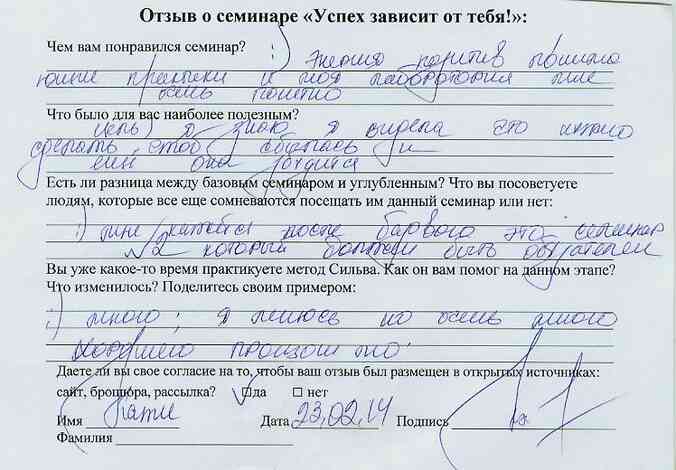 Отзыв о семинаре «Успех зависит от тебя!»:
Чем вам понравился семинар? :)
практики и моя лаборатория мне
очень понятно
Что было для вас наиболее полезным?
цель) я знаю я видела это нужно
сделать, чтоб сбылась и
она
Есть ли разница между базовым семинаром и углубленным? Что вы посоветуете
людям, которые все еще сомневаются посещать им данный семинар или нет:
:) мне кажется после это семинар
№2 который должен быть
Вы уже какое-то время практикуете метод Сильва. Как он вам помог на данном этапе?
Что изменилось? Поделитесь своим примером:
:) много; я но очень много
хорошего
Даете ли вы свое согласие на то, чтобы ваш отзыв был размещен в открытых источниках:
сайт, брошюра, рассылка? ☑да ☐ нет
Имя Дата 23,02,14 Подпись
Фамилия